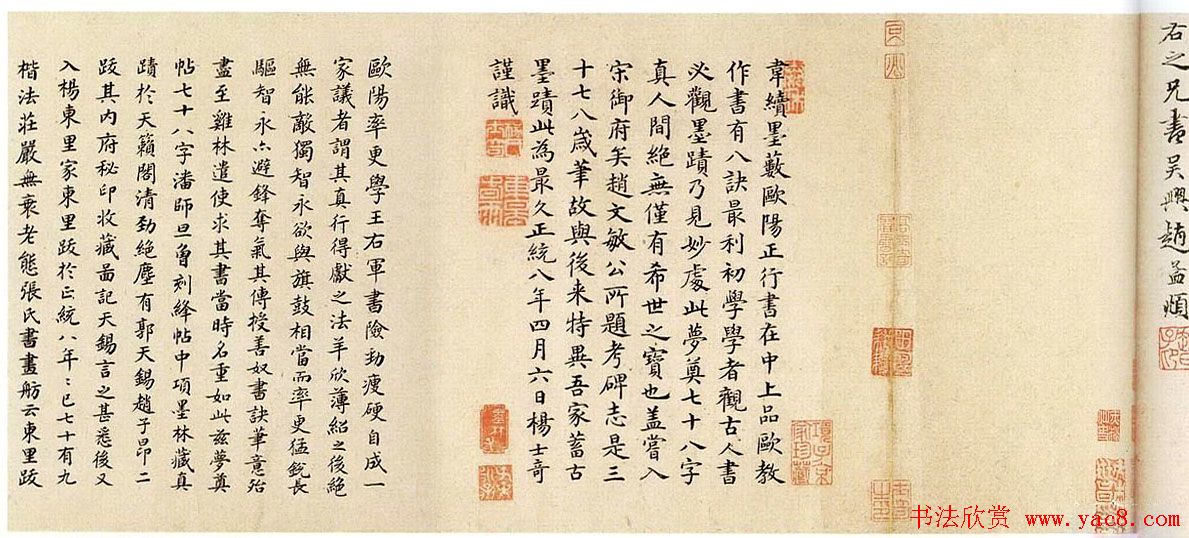 右之兄書吳興趙孟頫
韋續墨藪歐陽正行書在中上品歐教
作書有八訣最利初學學者觀古人書
必觀墨蹟乃見妙處此夢奠七十八字
真人間絕無僅有希世之寶也蓋嘗入
宋御府矣趙文敏公所題考碑志是三
十七八歲筆故與後来特異吾家蓄古
墨蹟此為最久正統八年四月六日楊士奇
謹識
歐陽率更學王右軍書險劲瘦硬自成一
家議者謂其真行得獻之法羊欣薄紹之後絕
無能敵獨智永欲與旗鼓相當而率更猛銳長
驅智永亦避鋒奪氣其傳授善奴書訣筆意殆
盡至雞林遣使求其書當時名重如此兹夢奠
帖七十八字潘師旦曾刻絳帖中項墨林藏真
蹟於天籟閣清劲絕塵有郭天錫趙子昂二
跋其内府秘印收藏啚記天錫言之甚悉後又
入楊東里家東里跋於正統八年〻已七十有九
楷法莊嚴無衰老態張氏書畫舫云東里跋
书法欣赏 www.yac8.com